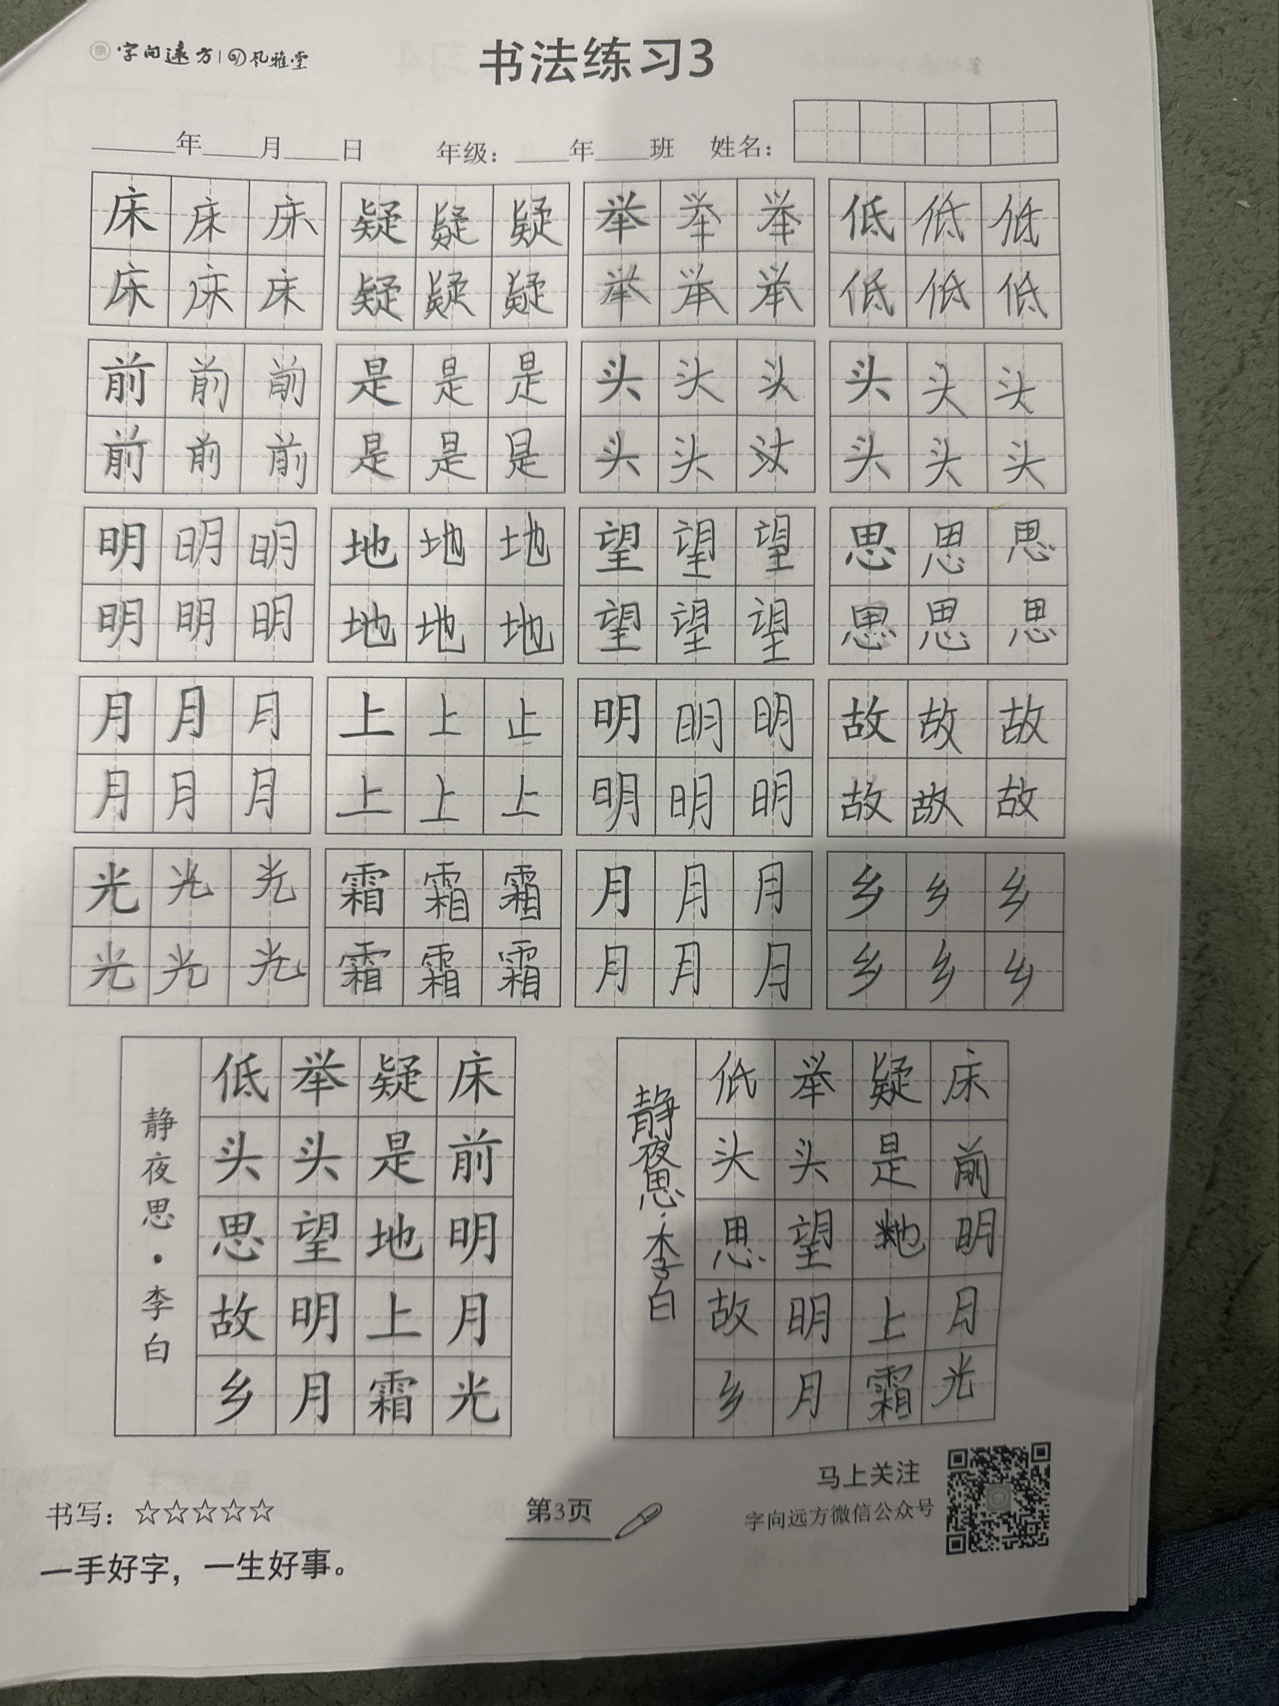 字向远方 孔雅堂
书法练习3
____年____月____日 年级：____年____班 姓名：
床床床 疑疑疑 举举举 低低低
床床床 疑疑疑 举举举 低低低
前前前 是是是 头头头 头头头
前前前 是是是 头头头 头头头
明明明 地地地 望望望 思思思
明明明 地地地 望望望 思思思
月月月 上上止 明明明 故故故
月月月 上上上 明明明 故故故
光光光 霜霜霜 月月月 乡乡乡
光光光 霜霜霜 月月月 乡乡乡
床前明月光
疑是地上霜
举头望明月
低头思故乡
静夜思·李白
床前明月光
疑是地上霜
举头望明月
低头思故乡
静夜思·李白
书写：☆☆☆☆☆
一手好字，一生好事。
第3页
马上关注
字向远方微信公众号